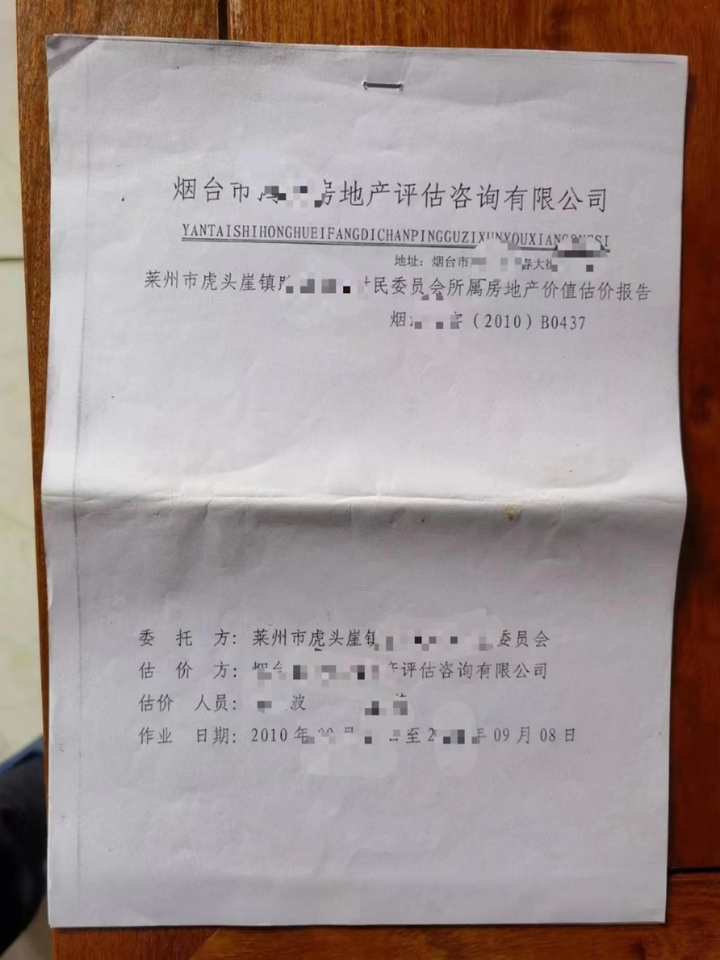 烟台市 房地产评估咨询有限公司
YANTAISHIHONGHUEIFANGDICHANPINGGUZIXUNYOUXIANGONGSI
地址：烟台市 春大街
莱州市虎头崖镇 村民委员会所属房地产价值估价报告
烟 字（2010）B0437
委 托 方：莱州市虎头崖镇 委员会
估 价 方：烟台 产评估咨询有限公司
估价 人员： 波
作业 日期：2010年 至2 年09月08日